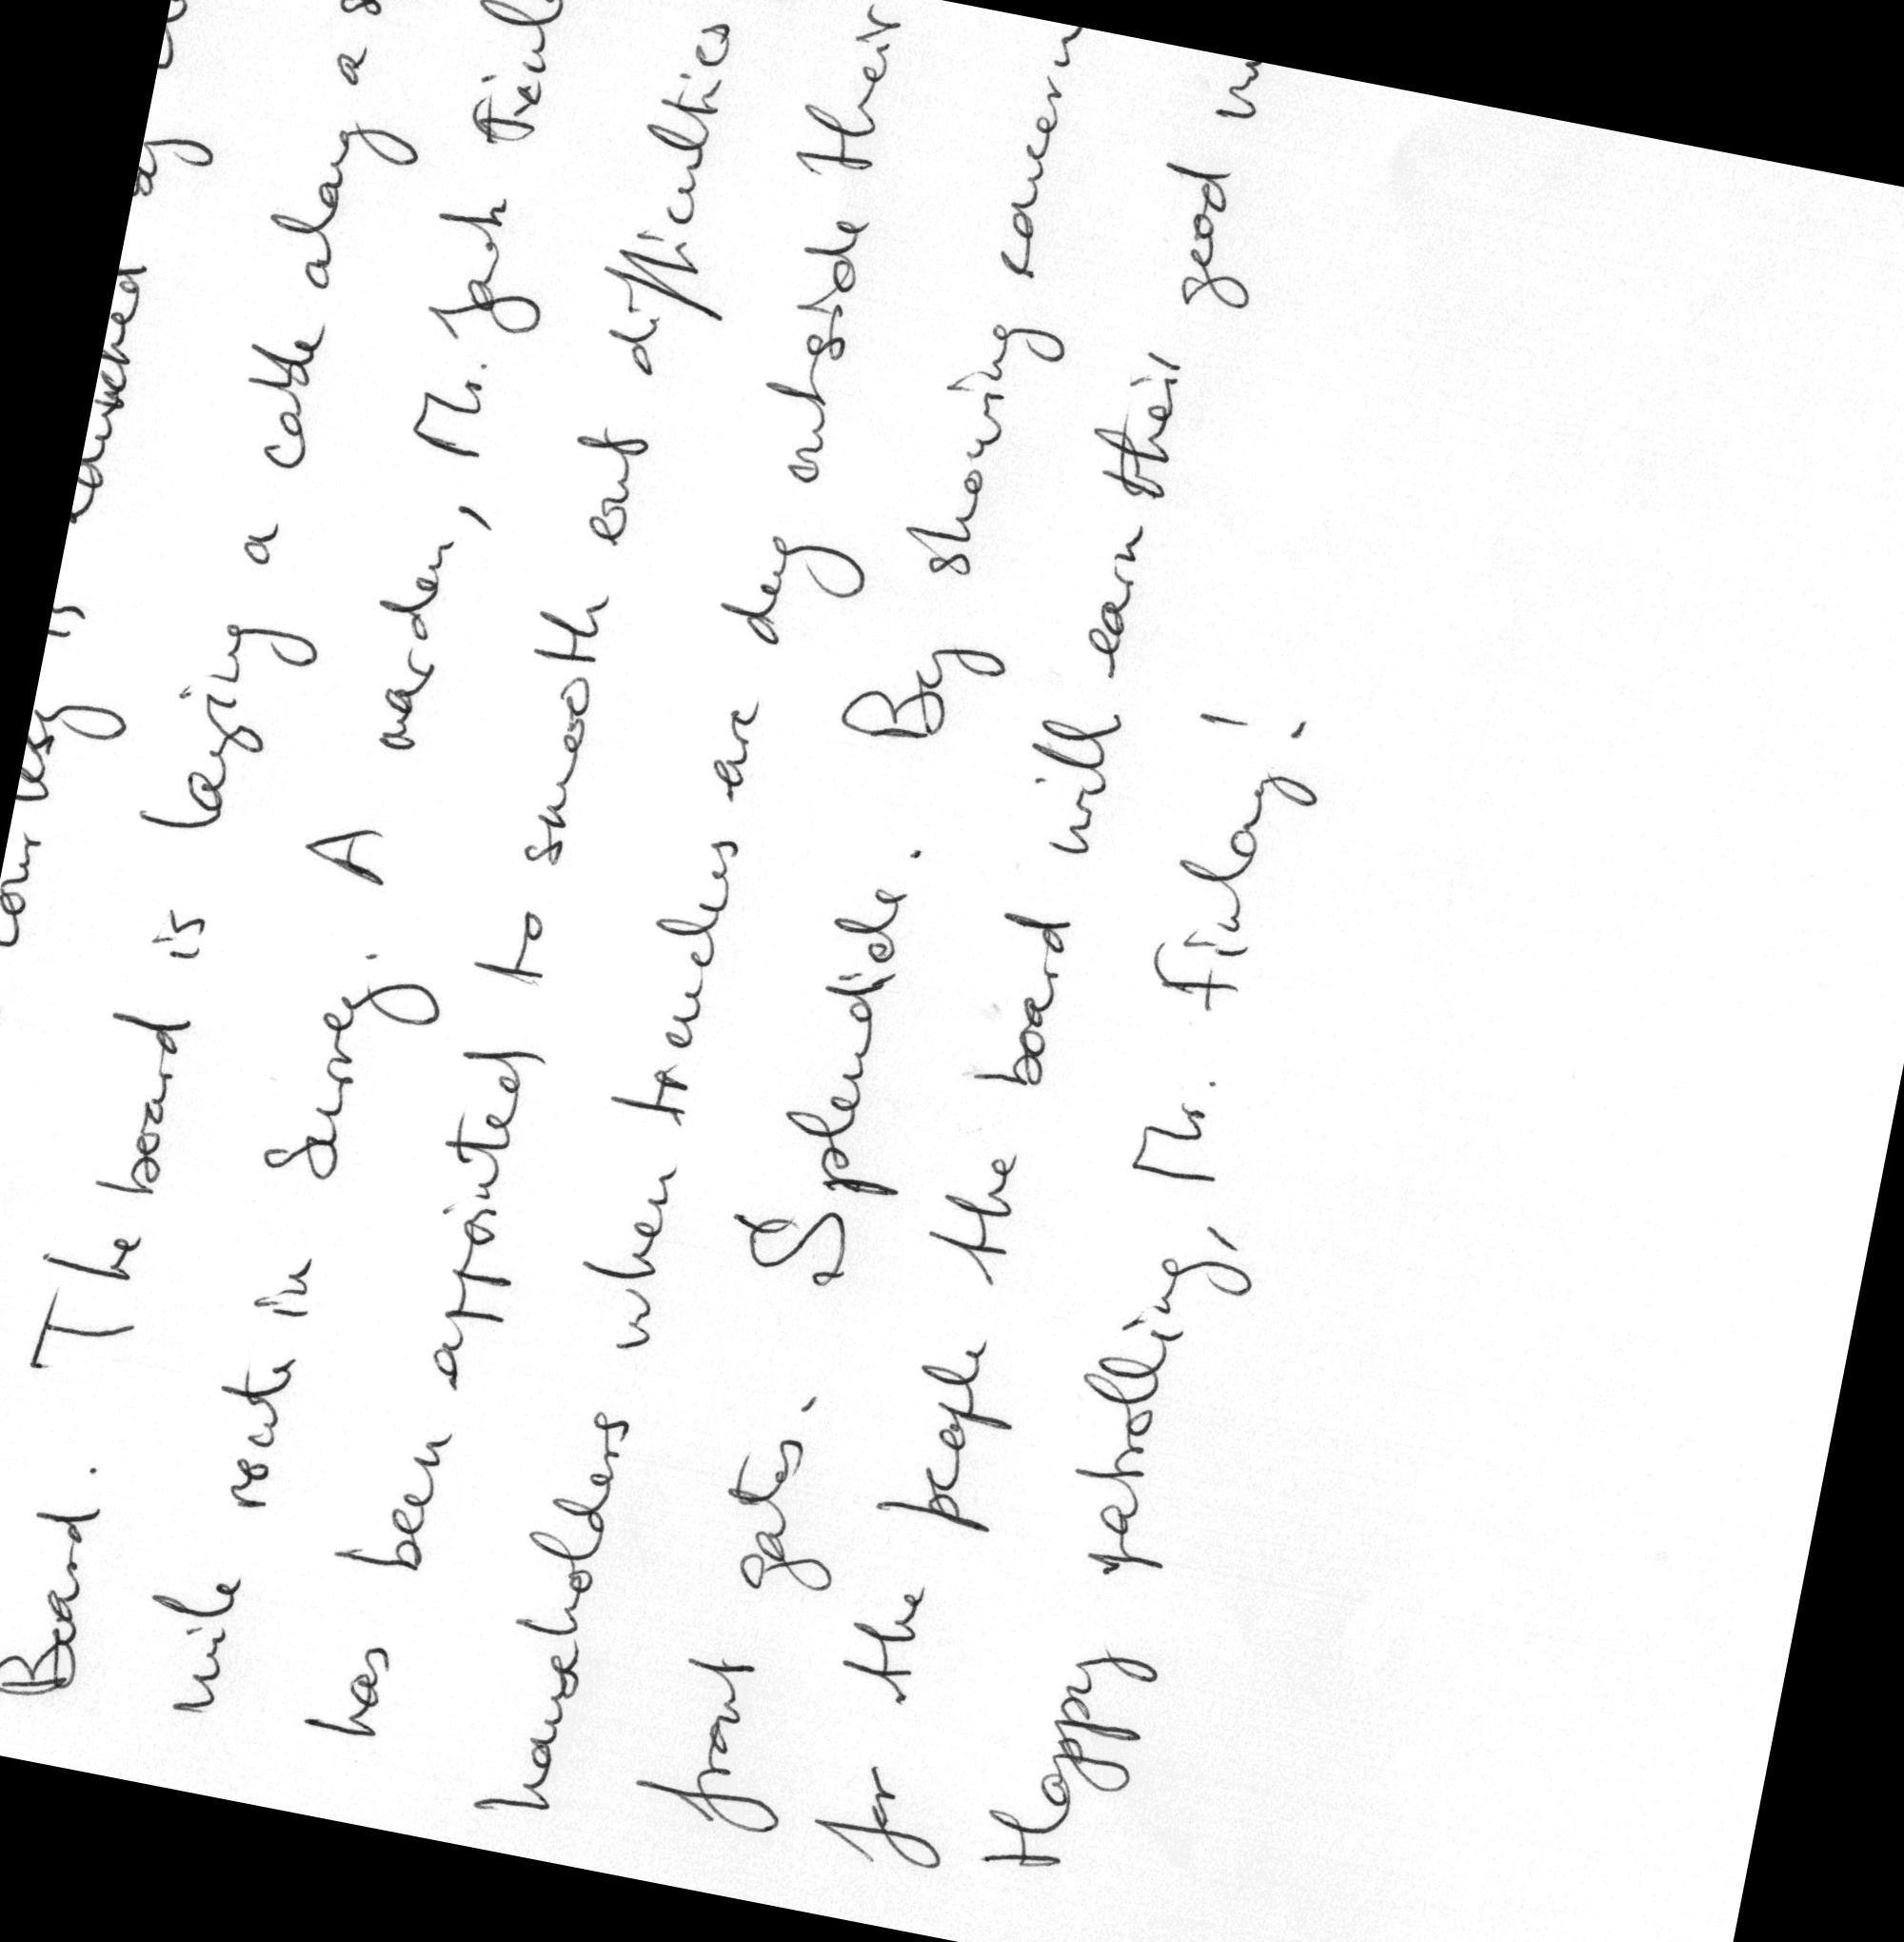 courtesy is launched by
Board. The board is laying a cable along a
mile route in Surrey. A warden, Mr. Jack
has been appointed to smooth out difficulties
householders when trenches are dug outside their
front gates. Splendide. By showing concern
for the people the board will earn their good
Happy patrolling, Mr. Finlay!